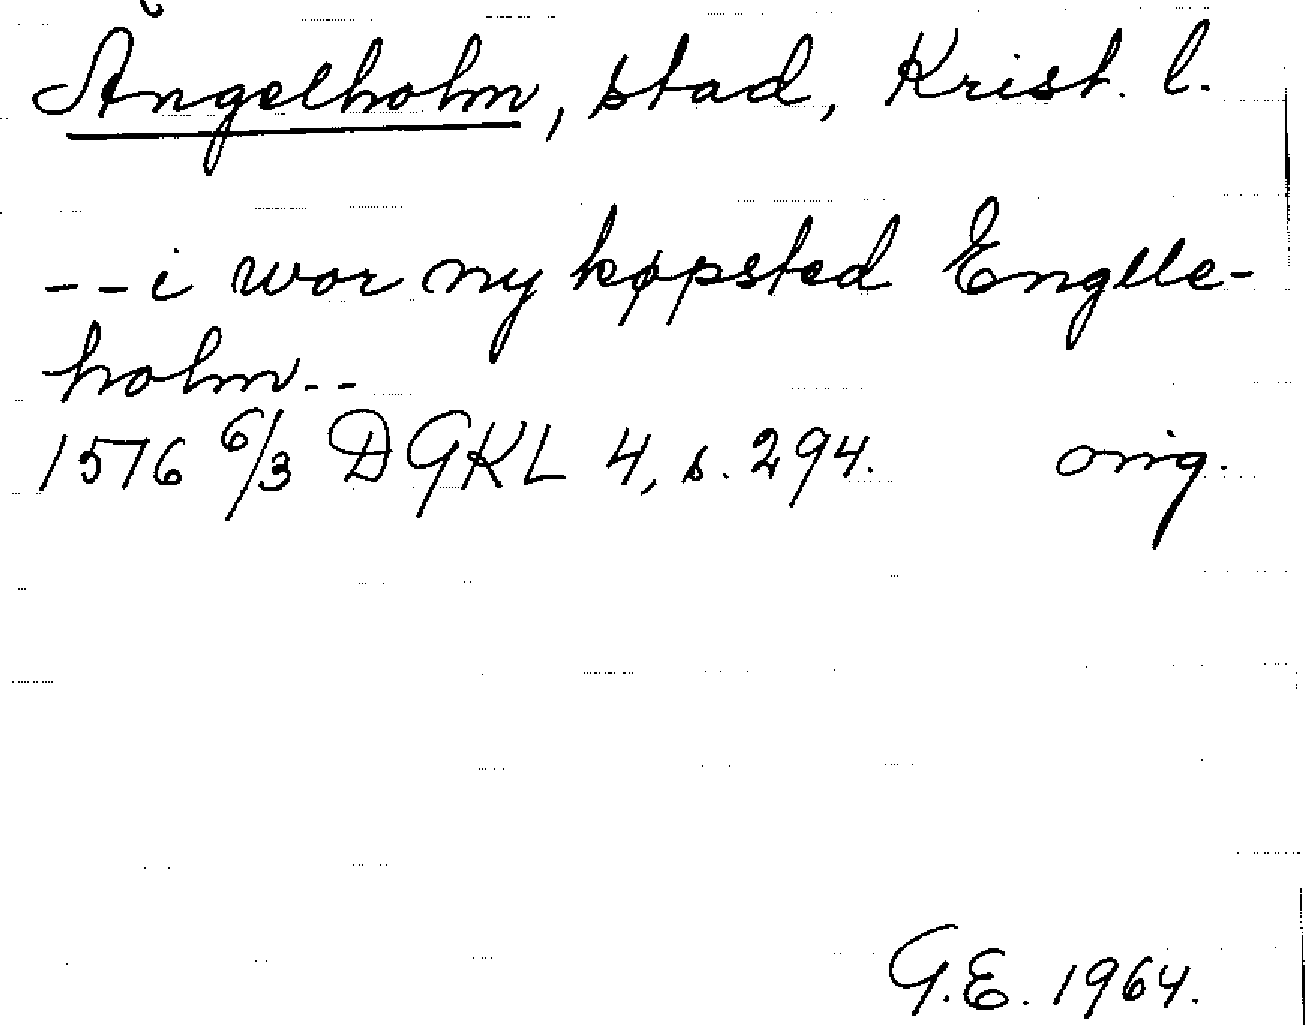 Ängelholm, stad, Krist. l.
-- i wor ny køpsted Englle-
holm --
1576 6/3 DGKL 4, s. 294. orig.
G.E. 1964.